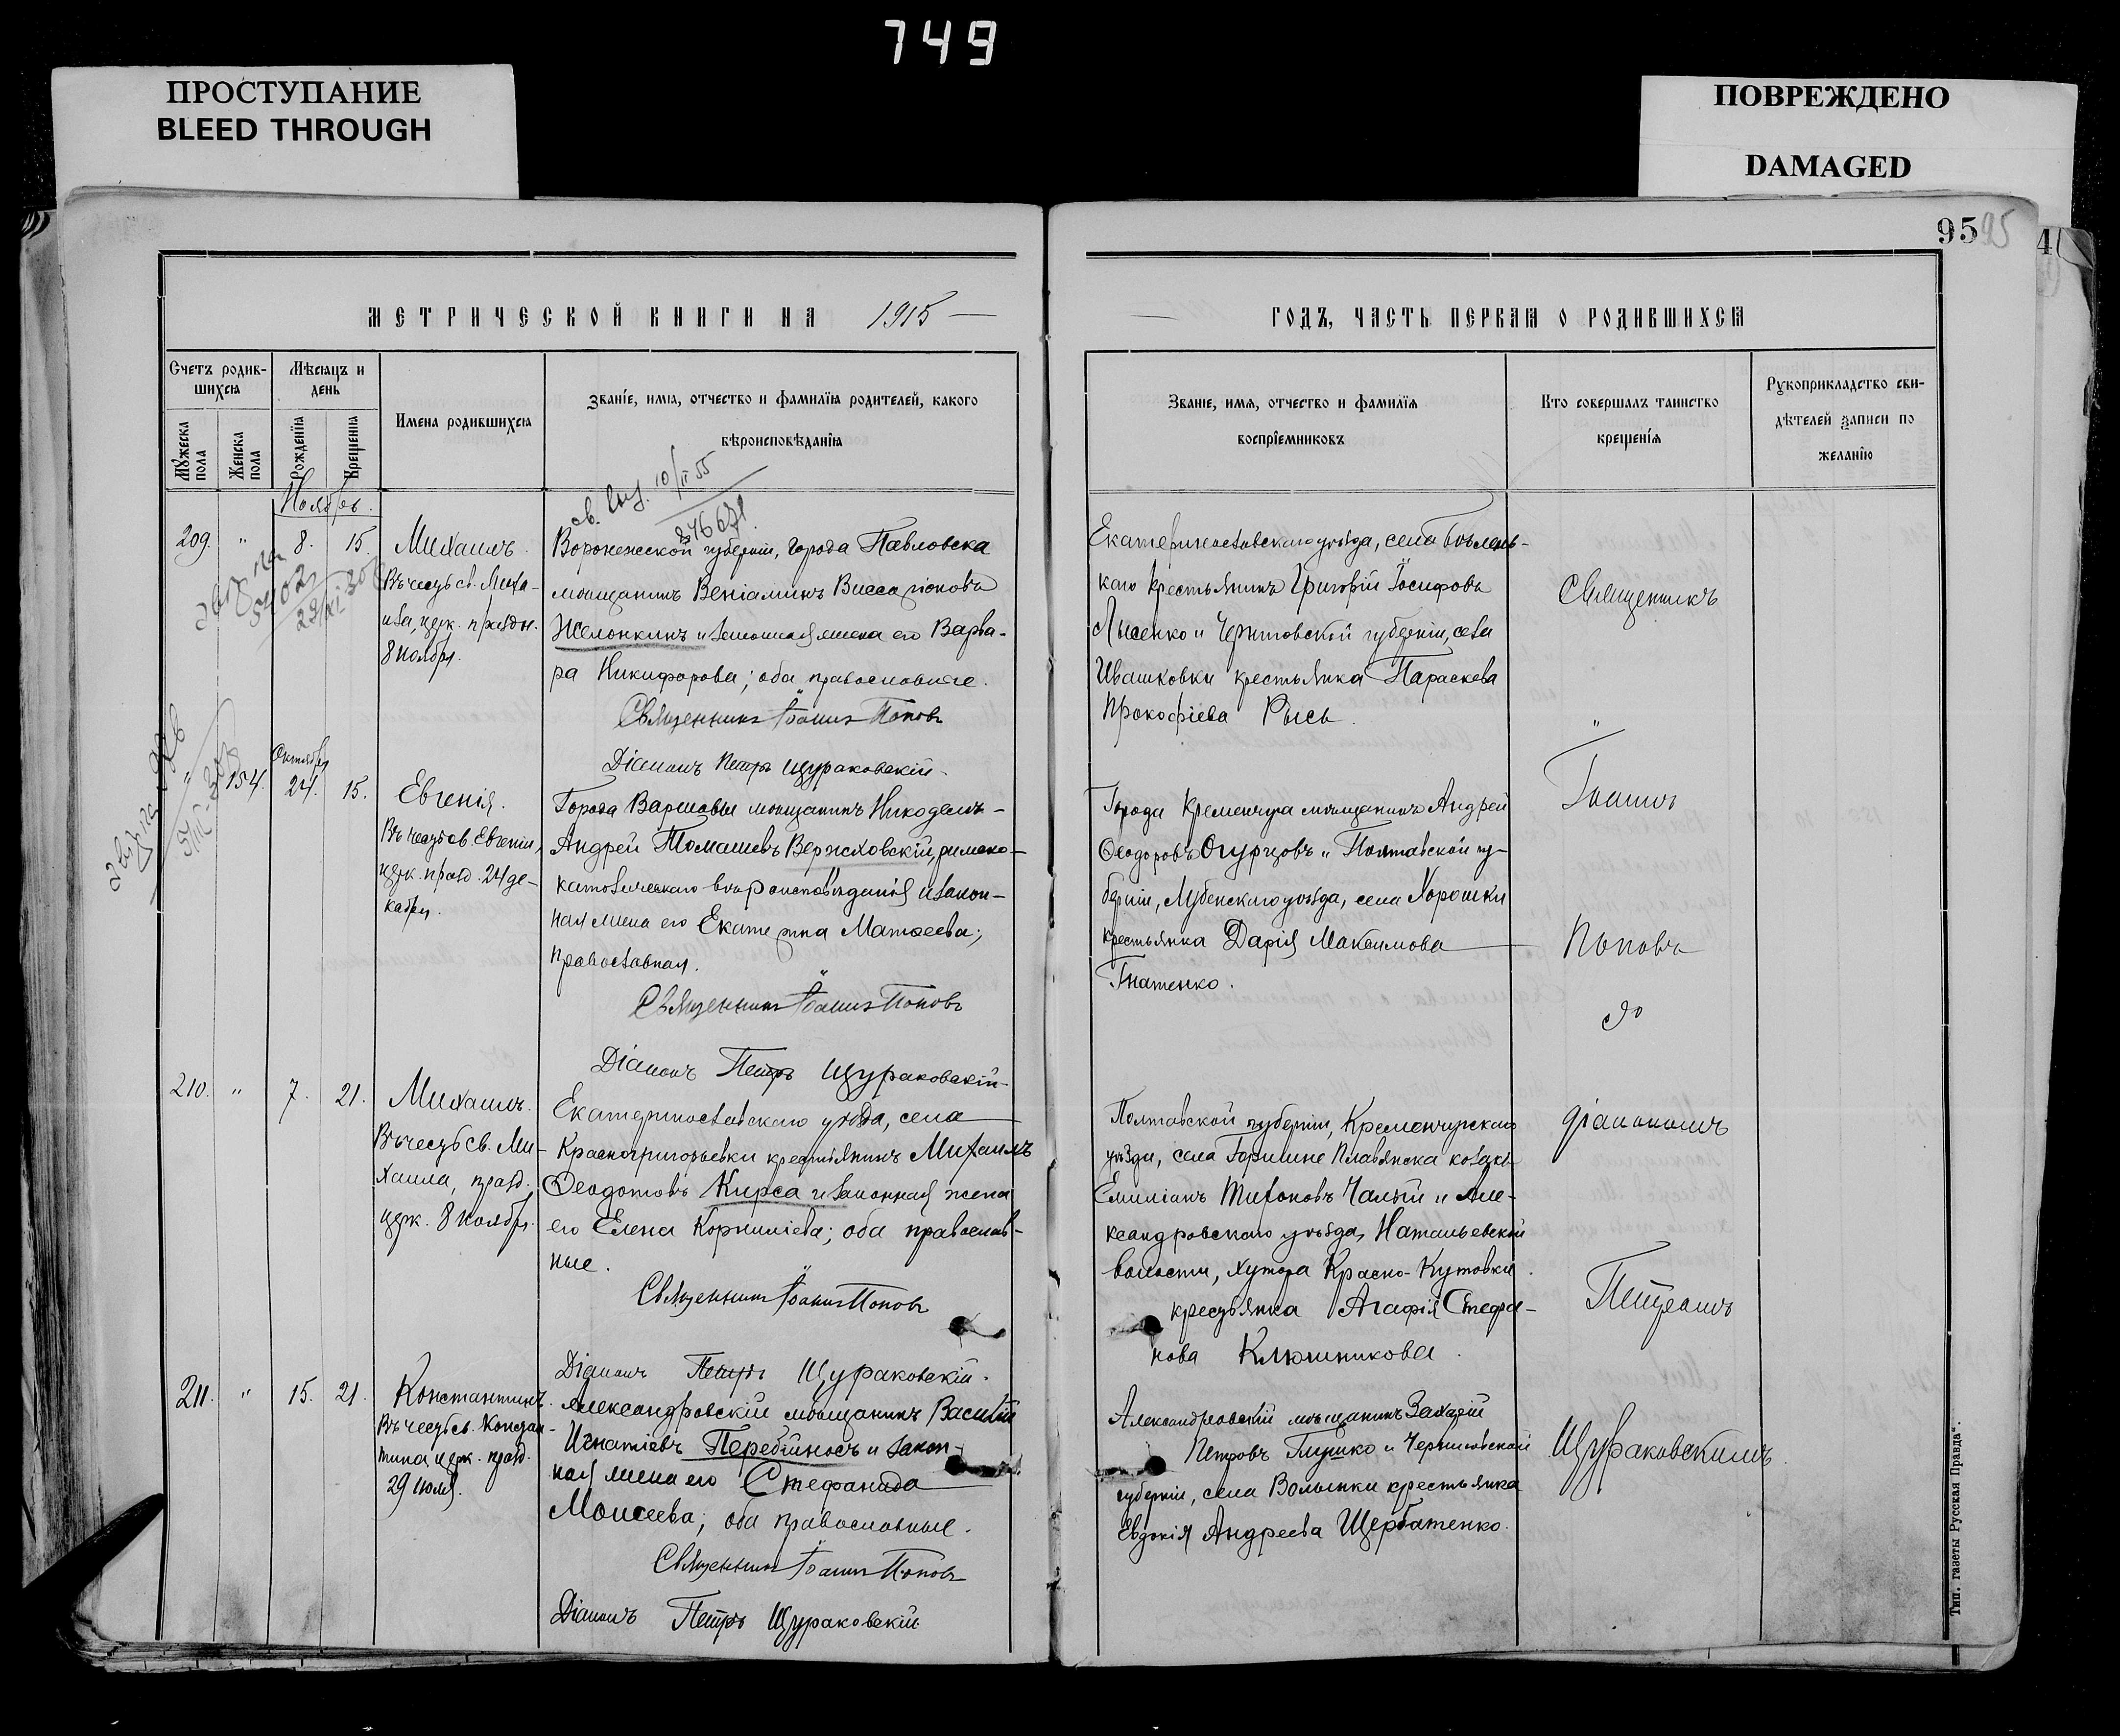 749
ПРОСТУПАНИЕ
BLEED THROUGH
ПОВРЕЖДЕНО
DAMAGED
95 95
4
МЕТРИЧЕСКОЙ КНИГИ НА 1915 —
Счетъ родив-
шихся
Мѣсяцъ и
день
Мужеска
пола
Женска
пола
Рожденія
Крещенія
Имена родившихся
Званіе, имя, отчество и фамилія родителей, какого
вѣроисповѣданія
Ноябрь.
10/II 55
209. " 8. 15. Михаилъ.
Въ честь св. Миха-
ила, церк. праздн.
8 ноября.
5402
Воронежской губерніи, города Павловска
мѣщанинъ Веніаминъ Виссаріоновъ
Желонкинъ и законная жена его Варва-
ра Никифорова; оба православные.
Священникъ Іоаннъ Поповъ
Діаконъ Петръ Щураковскій.
Октября
" 154. 24. 15. Евгенія.
Въ честь св. Евгеніи,
церк. празд. 24 де-
кабря.
Города Варшавы мѣщанинъ Никодимъ-
Андрей Томашевъ Вержховскій, римско-
католическаго вѣроисповѣданія и закон-
ная жена его Екатерина Матвеева;
православная.
Священникъ Іоаннъ Поповъ
Діаконъ Петръ Щураковскій.
210. " 7. 21. Михаилъ.
Въ честь св. Ми-
хаила, празд.
церк. 8 ноября.
Екатеринославскаго уѣзда, села
Красногригорьевки крестьянинъ Михаилъ
Ѳеодотовъ Кирса и законная жена
его Елена Корниліева; оба православ-
ные.
Священникъ Іоаннъ Поповъ
Діаконъ Петръ Щураковскій.
211. " 15. 21. Константинъ.
Въ честь св. Констан-
тина церк. празд.
29 июля.
Александровскій мѣщанинъ Василій
Игнатіевъ Перебійносъ и закон-
ная жена его Стефанида
Моисеева; оба православные.
Священникъ Іоаннъ Поповъ
Діаконъ Петръ Щураковскій
ГОДЪ, ЧАСТЬ ПЕРВАЯ О РОДИВШИХСЯ
Званіе, имя, отчество и фамилія
воспріемниковъ
Кто совершалъ таинство
крещенія
Рукоприкладство сви-
дѣтелей записи по
желанію
Екатеринославскаго уѣзда, села Бѣлень-
каго крестьянинъ Григорій Іосифовъ
Лысенко и Черниговской губерніи, села
Ивашковки крестьянка Параскева
Прокофіева Рысь.
Города Кременчуга мѣщанинъ Андрей
Ѳеодоровъ Огурцовъ и Полтавской гу-
берніи, Лубенскаго уѣзда, села Хорошки
крестьянка Дарія Максимова
Гнатенко.
Полтавской губерніи, Кременчугскаго
уѣзда, села Горишне Плавянска козакъ
Емиліанъ Тихоновъ Чалый и Але-
ксандровскаго уѣзда, Натальевской
волости, хутора Красно-Кутовки
крестьянка Агафія Стефа-
нова Ключникова.
Александровскій мѣщанинъ Захарій
Петровъ Глушко и Черниговской
губерніи, села Волынки крестьянка
Евдокія Андреева Щербатенко.
Священникъ
Іоаннъ
Поповъ
со
діакономъ
Петромъ
Щураковскимъ.
Тип. газеты Русская Правда".